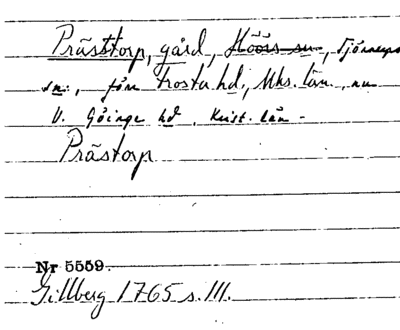 Prästtorp, gård, Höörs sn, Tjörnarps
sn., förr Frosta hd, Mhs. län, nu
V. Göinge hd, Krist. län -
Prästorp
Nr 5559.
Gillberg 1765 s. 111.